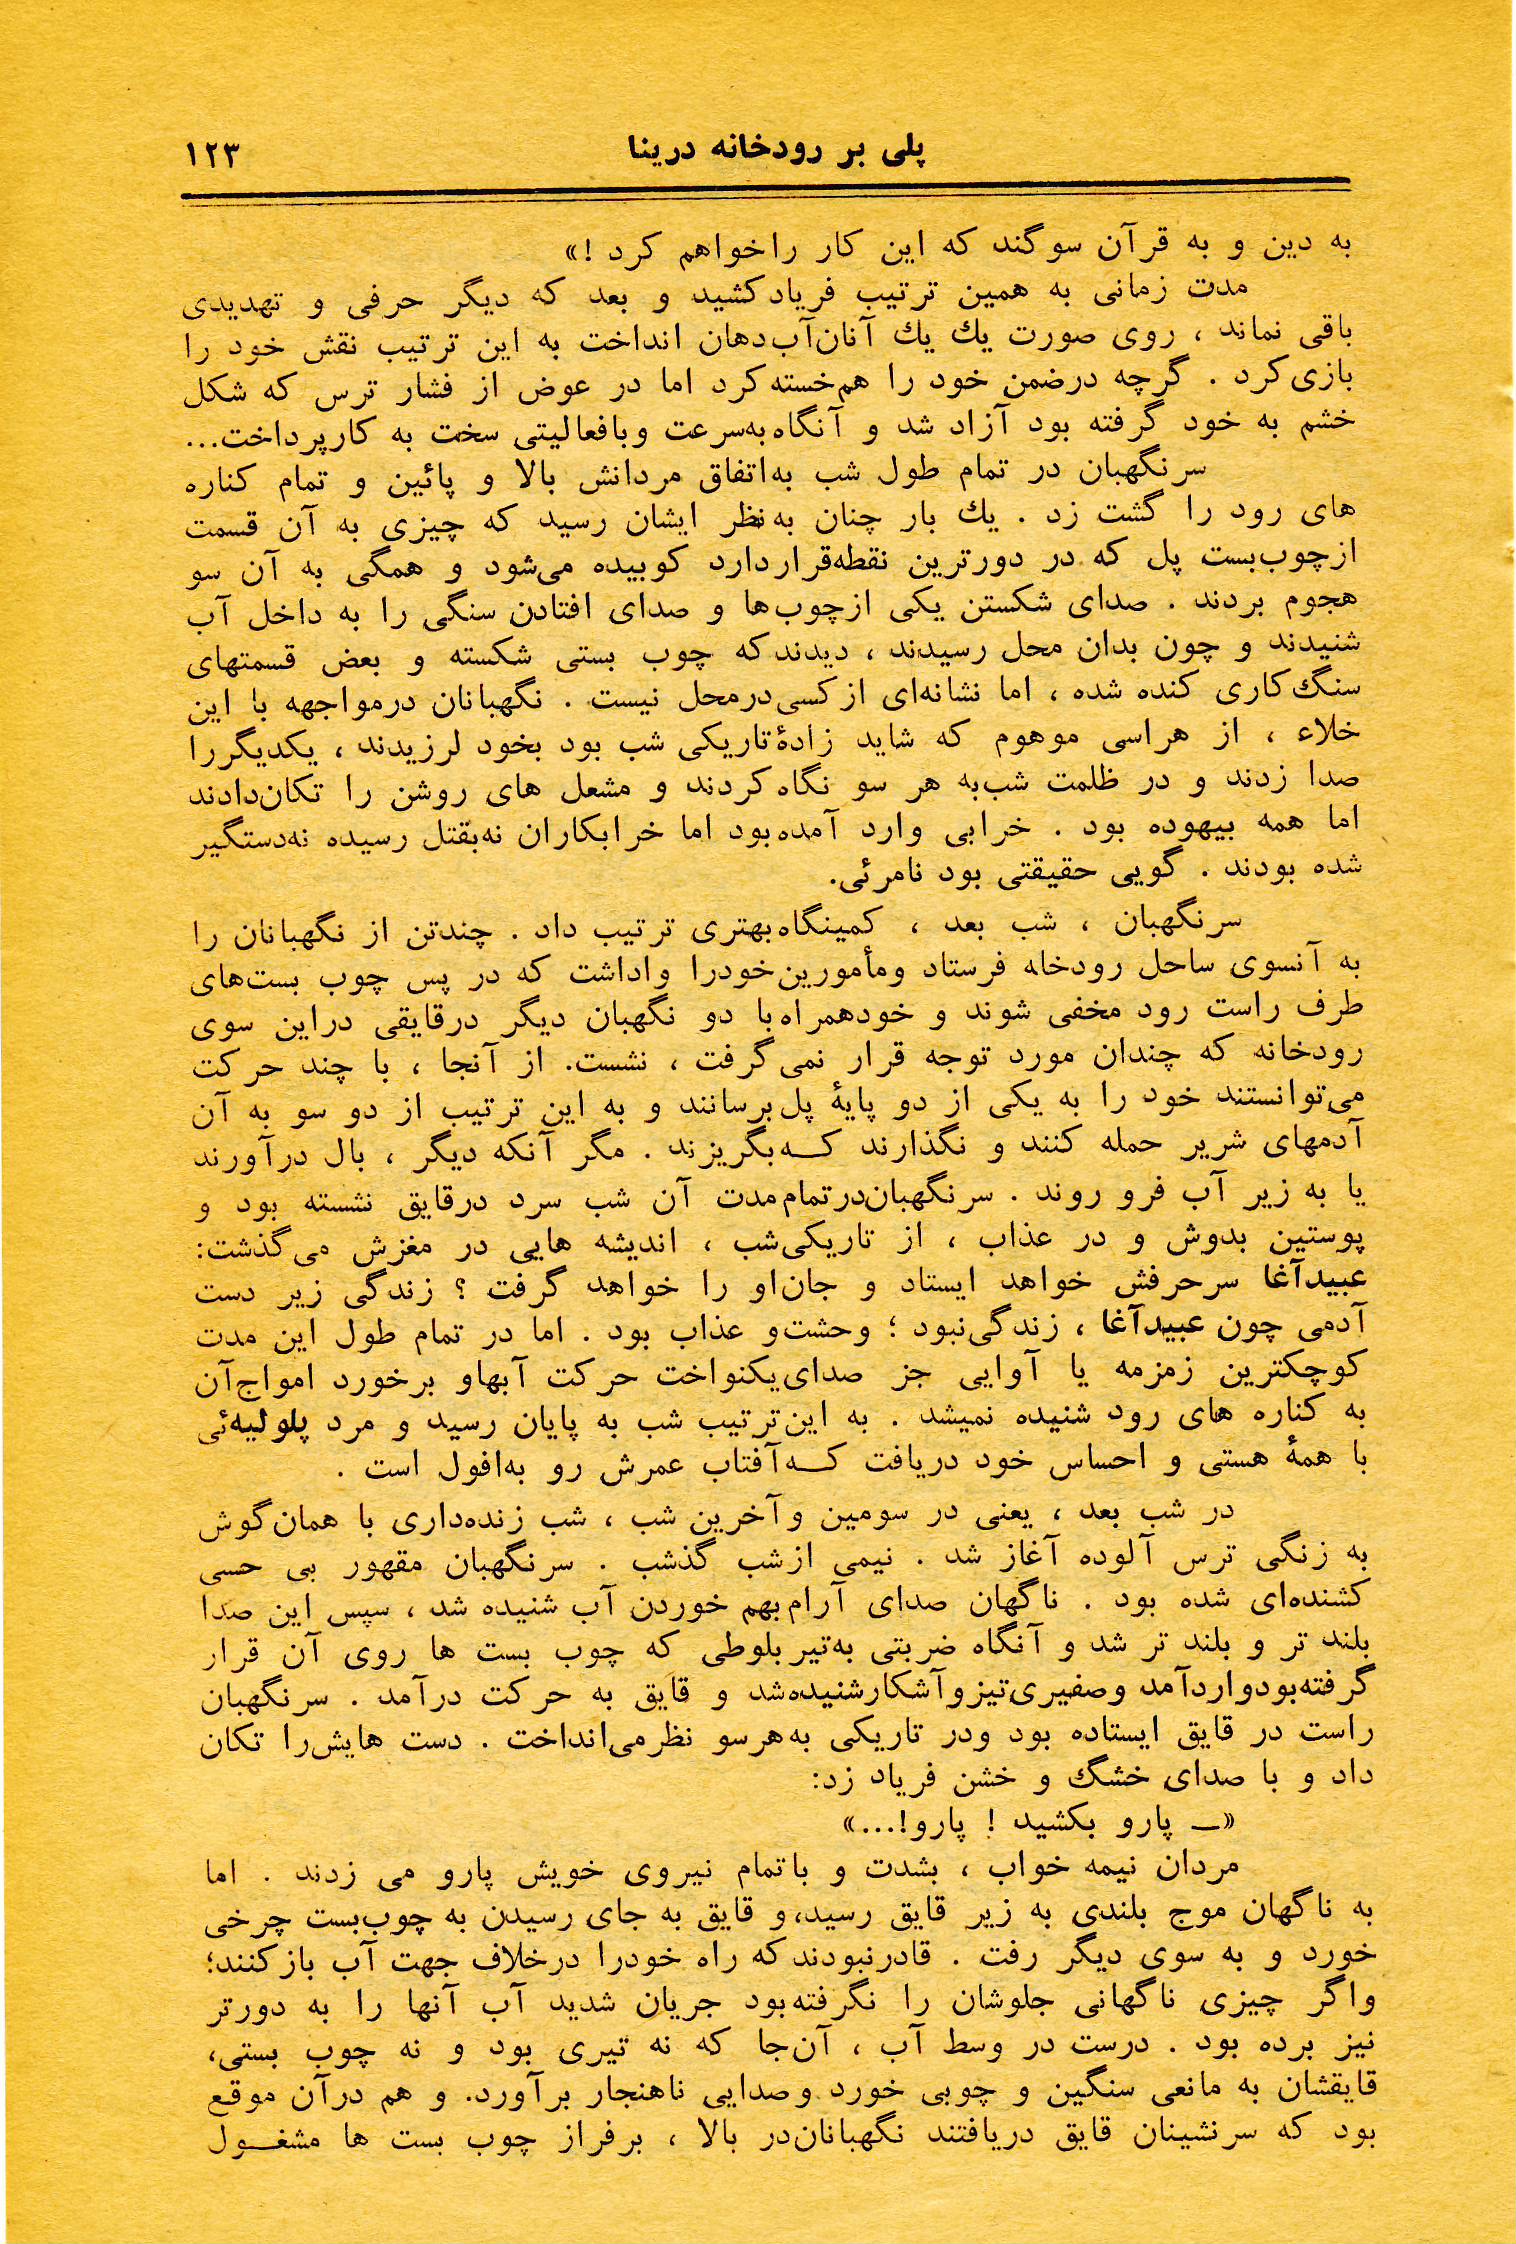 پلی بر رودخانه درینا
۱۲۳
به دین و به قرآن سوگند که این کار راخواهم کرد !»
مدت زمانی به همین ترتیب فریاد کشید و بعد که دیگر حرفی و تهدیدی
باقی نماند ، روی صورت یك یك آنان‌آب‌دهان انداخت به این ترتیب نقش خود را
بازی‌کرد . گرچه درضمن خود را هم‌خسته‌کرد اما در عوض از فشار ترس که شکل
خشم به خود گرفته بود آزاد شد و آنگاه به‌سرعت وبافعالیتی سخت به کارپرداخت...
سرنگهبان در تمام طول شب به‌اتفاق مردانش بالا و پائین و تمام کناره
های رود را گشت زد . یك بار چنان به‌نظر ایشان رسید که چیزی به آن قسمت
ازچوب‌بست پل که در دورترین نقطه‌قراردارد کوبیده می‌شود و همگی به آن سو
هجوم بردند . صدای شکستن یکی ازچوب‌ها و صدای افتادن سنگی را به داخل آب
شنیدند و چون بدان محل رسیدند ، دیدند که چوب بستی شکسته و بعض قسمتهای
سنگ‌کاری کنده شده ، اما نشانه‌ای ازکسی‌درمحل نیست . نگهبانان درمواجهه با این
خلاء ، از هراسی موهوم که شاید زادهٔ تاریکی شب بود بخود لرزیدند ، یکدیگررا
صدا زدند و در ظلمت شب‌به هر سو نگاه‌کردند و مشعل های روشن را تکان‌دادند
اما همه بیهوده بود . خرابی وارد آمده‌بود اما خرابکاران نه‌بقتل رسیده نه‌دستگیر
شده بودند . گویی حقیقتی بود نامرئی.
سرنگهبان ، شب بعد ، کمینگاه بهتری ترتیب داد . چندتن از نگهبانان را
به آنسوی ساحل رودخاله فرستاد ومأمورین‌خودرا واداشت که در پس چوب بست‌های
طرف راست رود مخفی شوند و خودهمراه با دو نگهبان دیگر درقایقی دراین سوی
رودخانه که چندان مورد توجه قرار نمی‌گرفت ، نشست. از آنجا ، با چند حرکت
می‌توانستند خود را به یکی از دو پایهٔ پل‌برسانند و به این ترتیب از دو سو به آن
آدمهای شریر حمله کنند و نگذارند کــه‌بگریزند . مگر آنکه دیگر ، بال درآورند
یا به زیر آب فرو روند . سرنگهبان‌درتمام‌مدت آن شب سرد درقایق نشسته بود و
پوستین بدوش و در عذاب ، از تاریکی‌شب ، اندیشه هایی در مغزش می‌گذشت:
عبیدآغا سرحرفش خواهد ایستاد و جان‌او را خواهد گرفت ؟ زندگی زیر دست
آدمی چون عبیدآغا ، زندگی‌نبود ؛ وحشت‌و عذاب بود . اما در تمام طول این مدت
کوچکترین زمزمه یا آوایی جز صدای‌یکنواخت حرکت آبهاو برخورد امواج‌آن
به کناره های رود شنیده نمیشد . به این‌ترتیب شب به پایان رسید و مرد پلولیه‌ئی
با همهٔ هستی و احساس خود دریافت کــه‌آفتاب عمرش رو به‌افول است .
در شب بعد ، یعنی در سومین وآخرین شب ، شب زنده‌داری با همان‌گوش
به زنگی ترس آلوده آغاز شد . نیمی ازشب گذشب . سرنگهبان مقهور بی حسی
کشنده‌ای شده بود . ناگهان صدای آرام بهم خوردن آب شنیده شد ، سپس این صدا
بلند تر و بلند تر شد و آنگاه ضربتی به‌تیر بلوطی که چوب بست ها روی آن قرار
گرفته‌بودواردآمد وصفیری‌تیزوآشکارشنیده‌شد و قایق به حرکت درآمد . سرنگهبان
راست در قایق ایستاده بود ودر تاریکی به‌هرسو نظرمی‌انداخت . دست هایش‌را تکان
داد و با صدای خشگ و خشن فریاد زد:
«ـ پارو بکشید ! پارو!...»
مردان نیمه خواب ، بشدت و باتمام نیروی خویش پارو می زدند . اما
به ناگهان موج بلندی به زیر قایق رسید، و قایق به جای رسیدن به چوب‌بست چرخی
خورد و به سوی دیگر رفت . قادرنبودند که راه خودرا درخلاف جهت آب بازکنند؛
واگر چیزی ناگهانی جلوشان را نگرفته‌بود جریان شدید آب آنها را به دورتر
نیز برده بود . درست در وسط آب ، آن‌جا که نه تیری بود و نه چوب بستی،
قایقشان به مانعی سنگین و چوبی خورد وصدایی ناهنجار برآورد. و هم درآن موقع
بود که سرنشینان قایق دریافتند نگهبانان‌در بالا ، برفراز چوب بست ها مشغــول